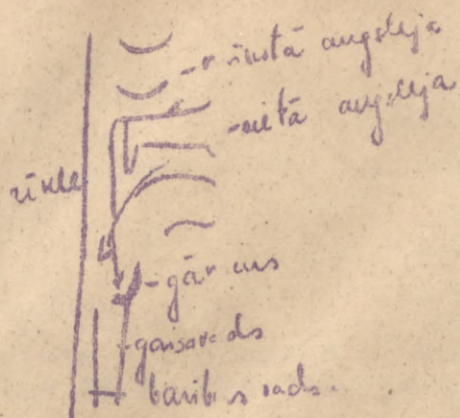 - mīkstā augsleja
- cietā augsleja
rīkle
- gāmurs
- gaisavads
barības vads.